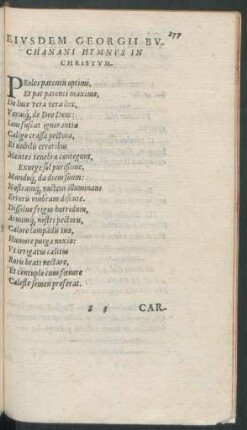 277
EIVSDEM GEORGII BV-
CHANANI HYMNVS IN
CHRISTVM.
PRoles parentis optimi,
Et par parenti maximo,
De luce vera vera lux,
Verusq́, de Deo Deus:
Iam fuscat ignorantia
Caligo crassa pectora,
Et nubili erroribus
Mentes tenebræ contegunt.
Exurge sol purissime,
Mundoq́, da diem suum:
Nostramq́, noctem illuminans
Erroris vmbram discute.
Dissolue frigus horridum,
Animoq́, nostri pectoris,
Calore lampadis tuæ,
Humore purga noxio:
Vt irrigatus cælitus
Roris beati nectare,
Et centuplo cum fœnore
Cæleste semen proferat.
S 5 CAR-